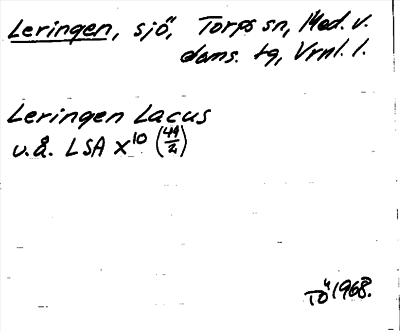 Leringen, sjö, Torps sn, Med. v.
doms. tg, Vrnl. l.
Leringen Lacus
u.å. LSA X10 (49/2)
TÖ 1968.